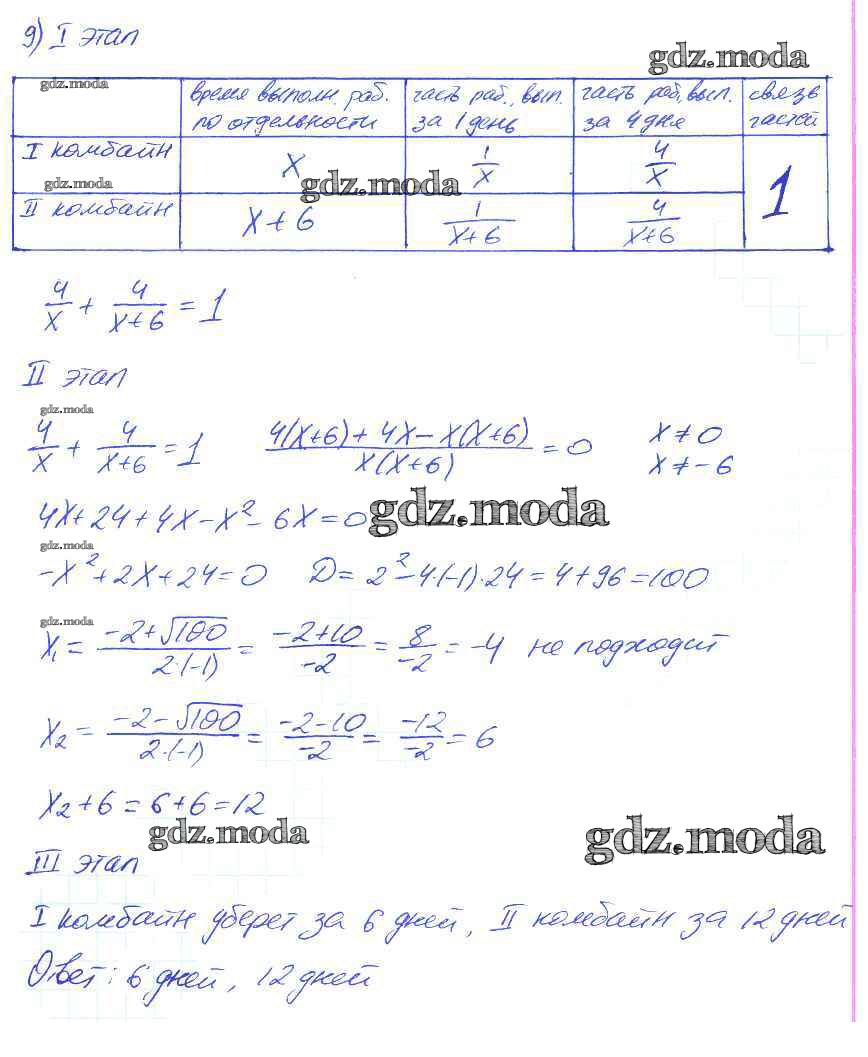 9) I этап
gdz.moda
gdz.moda
время выполн. раб. по отдельности
часть раб., вып. за 1 день
часть раб, вып. за 4 дня
связь частей
I комбайн
x
1/x
4/x
1
gdz.moda
gdz.moda
II комбайн
x+6
1/(x+6)
4/(x+6)
4/x + 4/(x+6) = 1
gdz.moda
II этап
gdz.moda
4/x + 4/(x+6) = 1
(4(x+6)+4x-x(x+6))/(x(x+6)) = 0
x≠0
x≠-6
4x+24+4x-x²-6x=0
gdz.moda
gdz.moda
-x²+2x+24=0 D=2²-4·(-1)·24=4+96=100
gdz.moda
x₁ = (-2+√100)/(2·(-1)) = (-2+10)/-2 = 8/-2 = -4 не подходит
x₂ = (-2-√100)/(2·(-1)) = (-2-10)/-2 = -12/-2 = 6
x₂+6=6+6=12
gdz.moda
gdz.moda
III этап
I комбайн уберет за 6 дней, II комбайн за 12 дней
Ответ: 6 дней, 12 дней